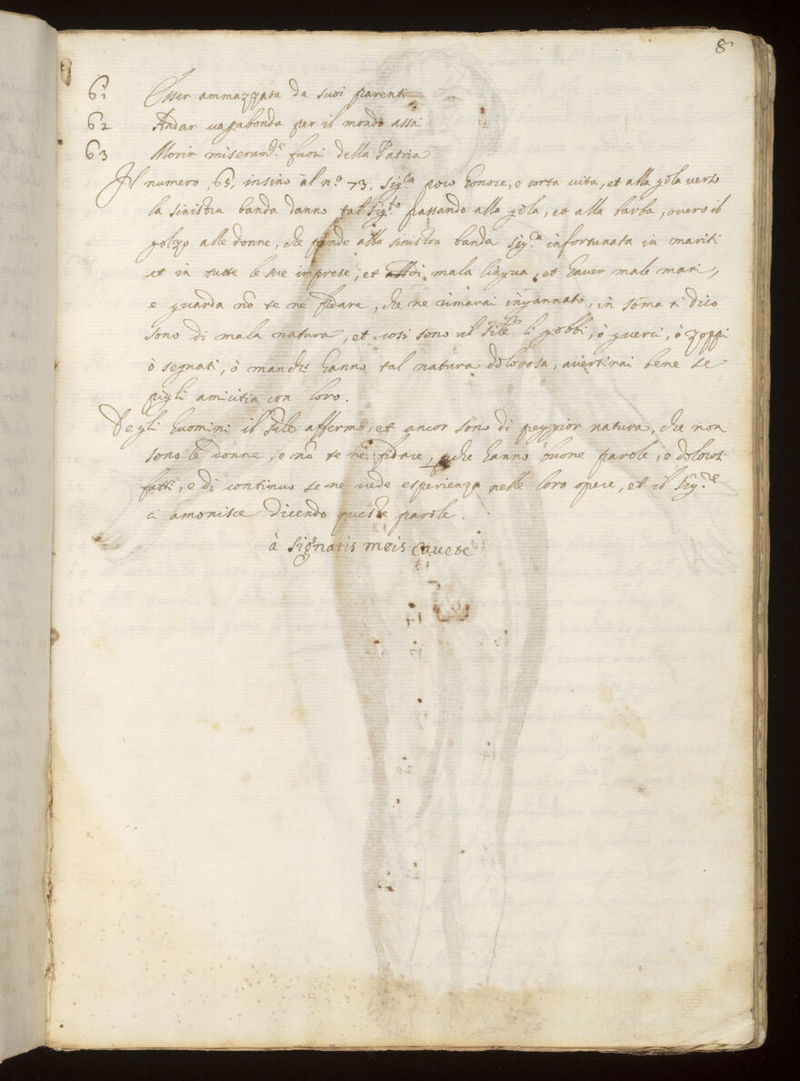 8
61 Esser ammazzata da suoi parenti
62 Andar uagabonda per il mondo assai
63 Morir miserand.e fuori della Patria
Il numero, 65, insino al n.o 73, sig.ca poco honore, e corta uita, et alla gola uerso
la sinistra banda danno tal sig.to passando alla gola, et alla barba, ouero il
gozzo alle donne, che pende alla sinistra banda sig.ca infortunata in mariti
et in tutte le sue imprese, et mala lingua, et hauer male mani,
e guarda nõ te ne fidare, che ne rimarai ingannato, in sõma ti dico
sono di mala natura, et cosi sono il sile li gobbi, ò guerci, ò zoppi
ò segnati, ò manchi hanno tal natura dolorosa, auertirai bene se
pigli amicitia con loro.
Degli huomini il sile affermo, et ancor sono di peggior natura, che non
sono le donne, e nõ te ne fidare, pche hanno buone parole, e dolorosi
fatti, e di continuo se ne uede esperienza nelle loro opere, et il Sig.re
ci amonisce dicendo queste parole.
à signatis meis cauete